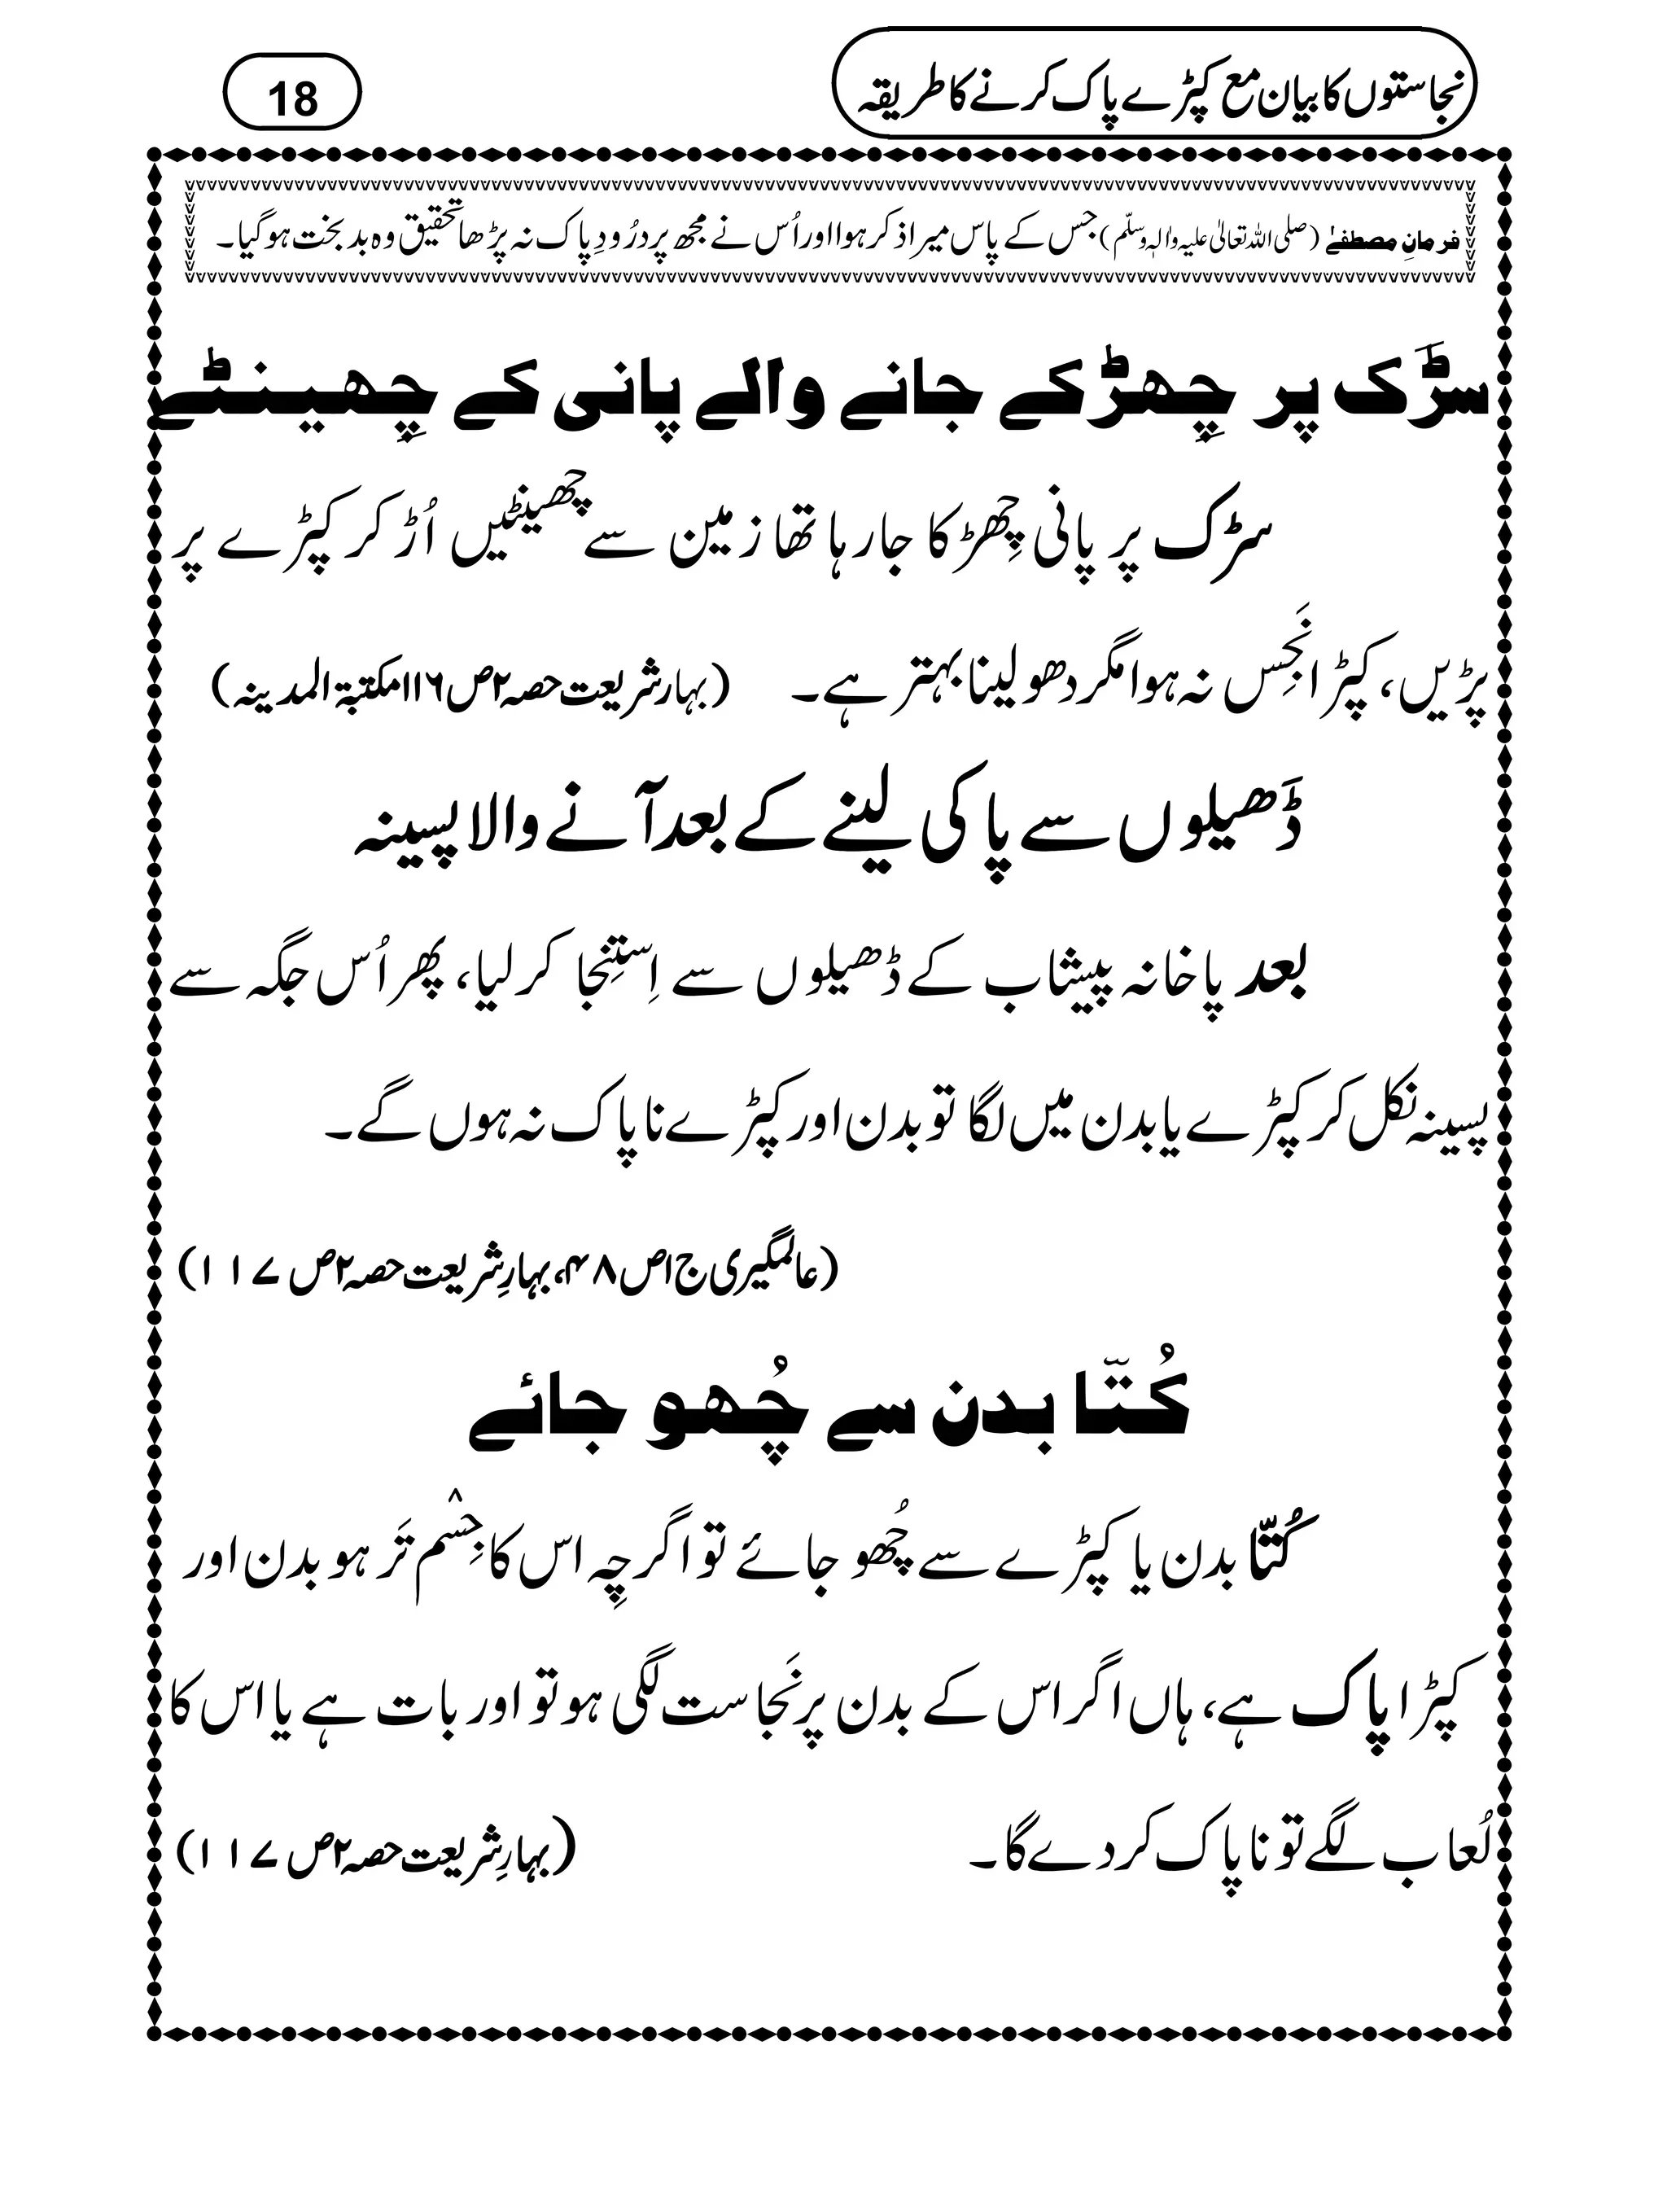 نجاستوں کا بیان مع کپڑے پاک کرنے کا طریقہ
18
فرمانِ مصطفےٰ (صلی اللہ تعالیٰ علیہ واٰلہٖ وسلّم) جس کے پاس میرا ذکر ہوا اور اُس نے مجھ پر درُودِ پاک نہ پڑھا تحقیق وہ بد بخت ہو گیا۔
سڑَک پر چِھڑکے جانے والے پانی کے چِھینٹے
سڑک پر پانی چِھڑکا جا رہا تھا زمین سے چھینٹیں اُڑ کر کپڑے پر
پڑیں، کپڑا نَجِس نہ ہوا مگر دھو لینا بہتر ہے۔ (بہار شریعت حصہ ۲ ص ۱۱۶ مکتبۃ المدینہ)
ڈَھیلوں سے پاکی لینے کے بعد آنے والا پسینہ
بعد پاخانہ پیشاب کے ڈھیلوں سے اِستِنجا کر لیا، پھر اُس جگہ سے
پسینہ نکل کر کپڑے یا بدن میں لگا تو بدن اور کپڑے ناپاک نہ ہوں گے۔
(عالمگیری ج۱ ص ۴۸، بہارِ شریعت حصہ ۲ ص ۱۱۷)
کُتّا بدن سے چُھو جائے
کُتّا بدن یا کپڑے سے چُھو جائے تو اگرچِہ اس کا جِسْم تَر ہو بدن اور
کپڑا پاک ہے، ہاں اگر اس کے بدن پر نَجاست لگی ہو تو اور بات ہے یا اس کا
لُعاب لگے تو ناپاک کر دے گا۔ (بہارِ شریعت حصہ ۲ ص ۱۱۷)